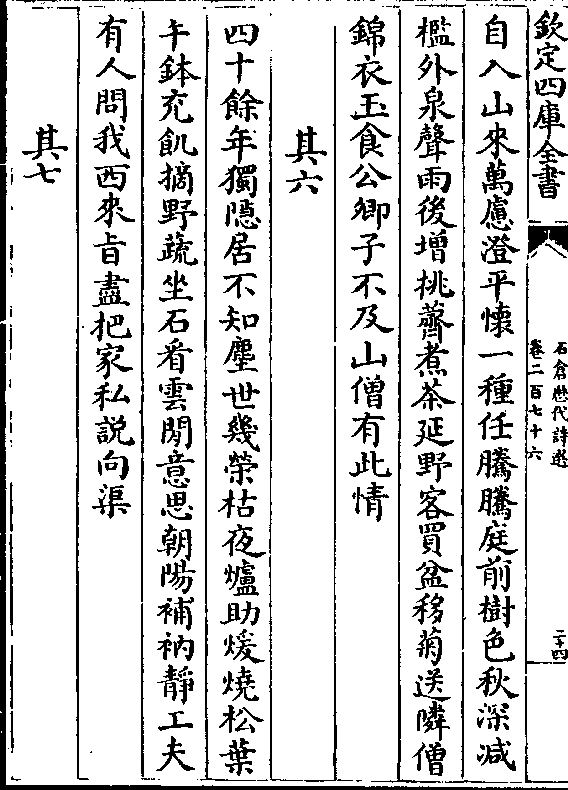 欽定四庫全書
石倉歴代詩選
卷二百七十六
二十四
自入山來萬慮澄平懷一種任騰騰庭前樹色秋深减
檻外泉聲雨後增挑薺煮茶延野客買盆移菊送隣僧
錦衣玉食公卿子不及山僧有此情
其六
四十餘年獨隠居不知塵世幾榮枯夜爐助煖燒松葉
午鉢充飢摘野蔬坐石看雲閒意思朝陽補衲靜工夫
有人問我西來㫖盡把家私説向渠
其七